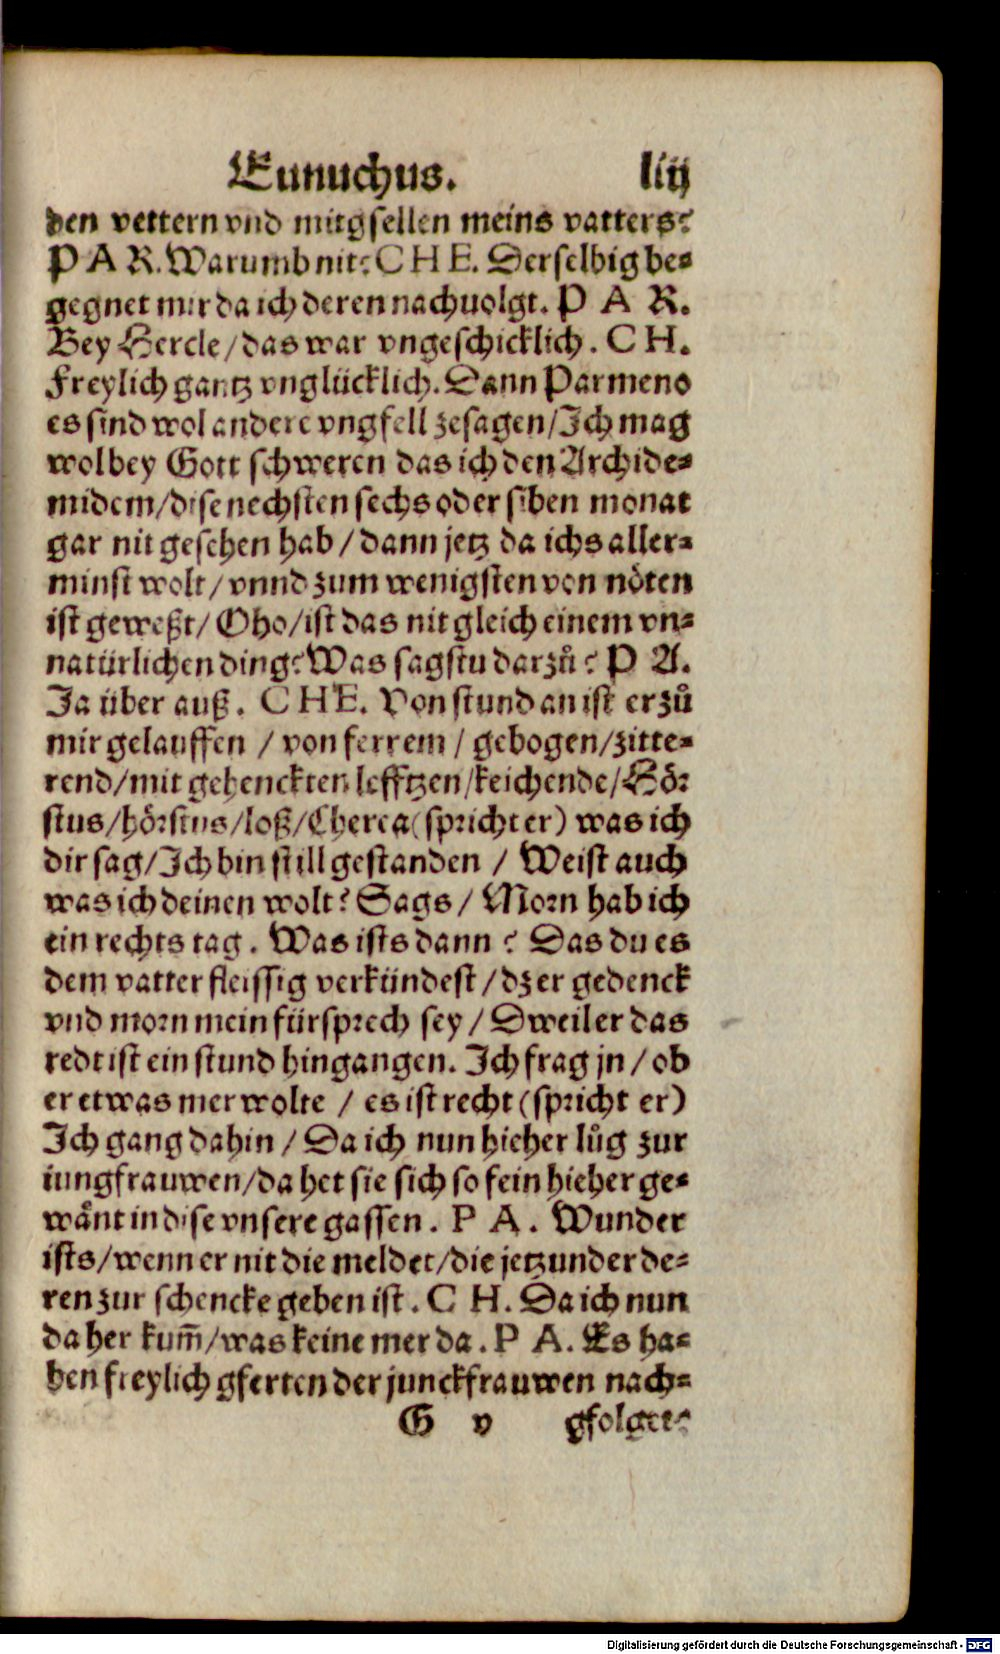 Eunuchus. liij
den vettern vnd mitgsellen meins vatters?
P A R. Warumb nit? C H E. Derselbig be-
gegnet mir da ich deren nachuolgt. P A R.
Bey Hercle/das war vngeschicklich. C H.
Freylich gantz vnglücklich. Dann Parmeno
es sind wol andere vngfell zesagen/Ich mag
wol bey Gott schweren das ich den Archide-
midem/dise nechsten sechs oder siben monat
gar nit gesehen hab/dann jetz da ichs aller-
minst wolt/vnnd zum wenigsten von nöten
ist geweßt/Oho/ist das nit gleich einem vn-
natürlichen ding? Was sagstu darzů? P A.
Ja über auß. C H E. Von stund an ist er zů
mir gelauffen/von ferrem/gebogen/zitte-
rend/mit gehenckten lefftzen/keichende/Hör
stus/hörstus/loß/Cherea(spricht er) was ich
dir sag/Ich bin still gestanden/Weist auch
was ich deinen wolt? Sags/Morn hab ich
ein rechts tag. Was ists dann? Das du es
dem vatter fleissig verkündest/dz er gedenck
vnd morn mein fürsprech sey/Dweil er das
redt ist ein stund hingangen. Ich frag jn/ob
er etwas mer wolte/es ist recht(spricht er)
Ich gang dahin/Da ich nun hieher lůg zur
iungfrauwen/da het sie sich so fein hieher ge-
wånt in dise vnsere gassen. P A. Wunder
ists/wenn er nit die meldet/die jetzunder de-
ren zur schencke geben ist. C H. Da ich nun
da her kum̃/was keine mer da. P A. Es ha-
ben freylich gferten der junckfrauwen nach-
G v gfolget?
Digitalisierung gefördert durch die Deutsche Forschungsgemeinschaft - DFG